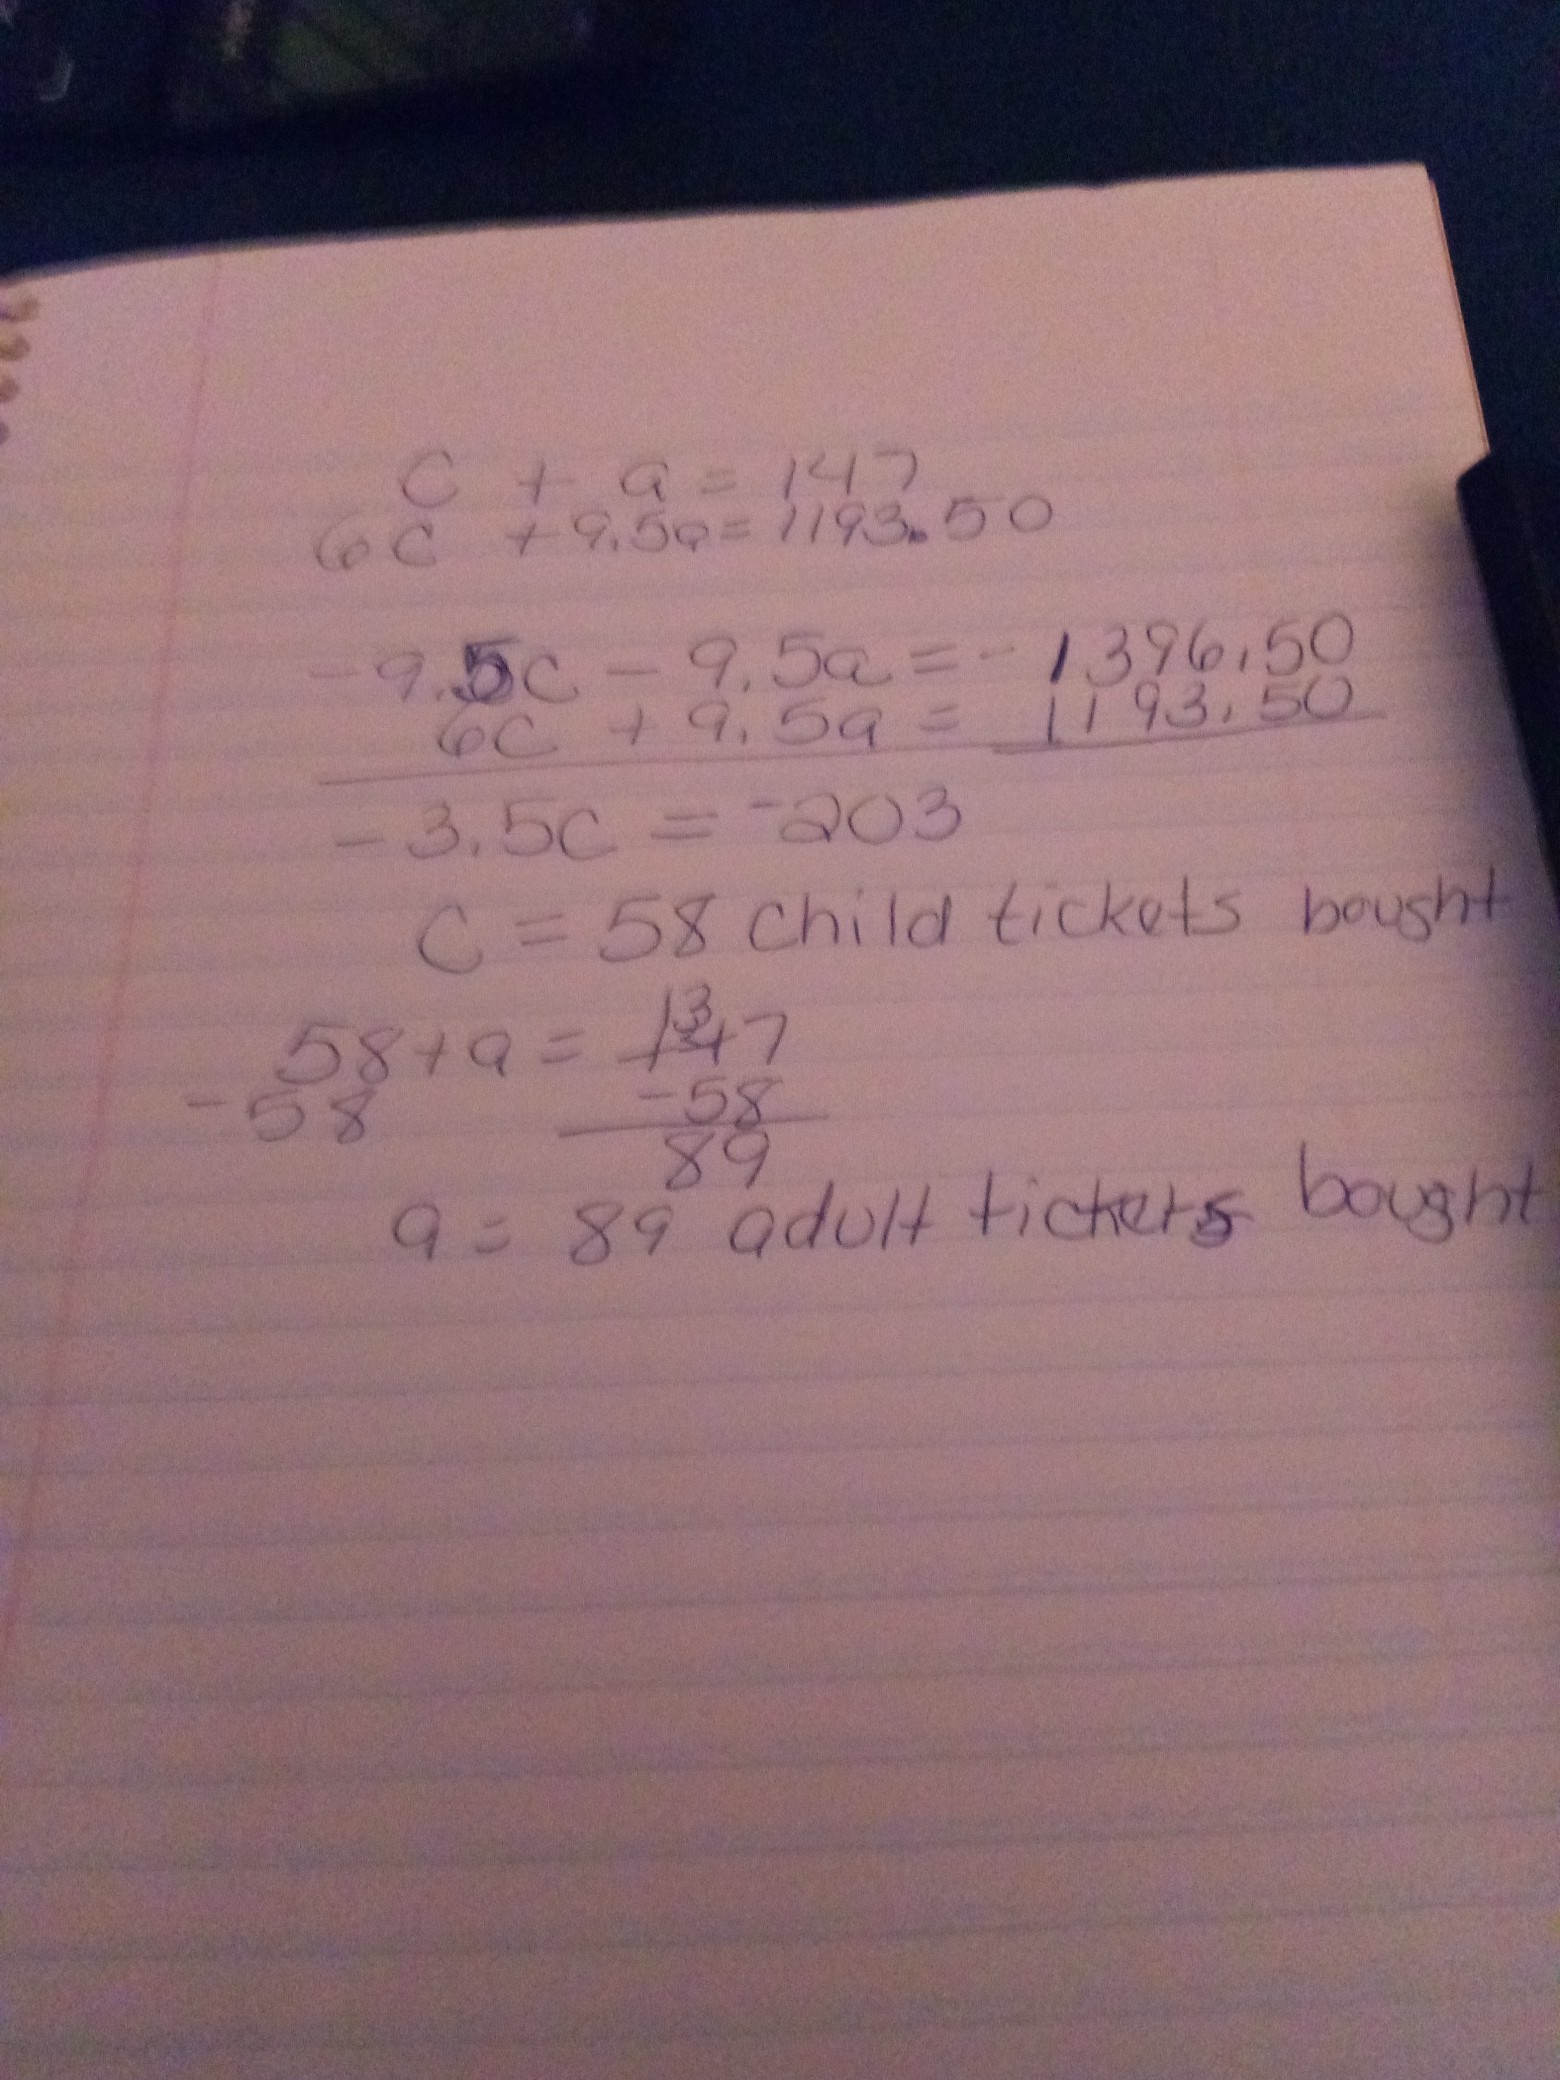 C + a = 147
6C + 9.5a = 1193.50
- 9.5C - 9.5a = - 1396.50
6C + 9.5a = 1193.50
- 3.5C = -203
C = 58 child tickets bought
13
58 + a = 147
-58 -58
89
a = 89 adult tickets bought